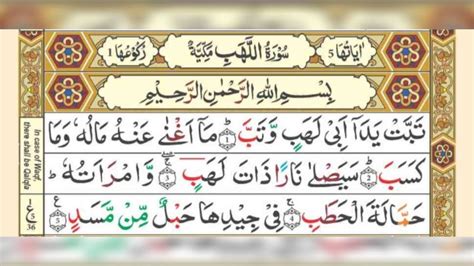 اٰيَاتُهَا 5 سُوْرَةُ اللَّهَبِ مَكِّيَّةٌ رُكُوْعُهَا 1
بِسْمِ اللّٰهِ الرَّحْمٰنِ الرَّحِيْمِ
تَبَّتْ يَدَاۤ اَبِىْ لَهَبٍ وَّتَبَّ ؕ‏ 1 مَاۤ اَغْنٰى عَنْهُ مَالُهٗ وَمَا
كَسَبَؕ‏ 2 سَيَصْلٰى نَارًا ذَاتَ لَهَبٍ ۖۚ‏ 3 وَّامْرَاَتُهٗ ؕ
حَمَّالَةَ الْحَطَبِ‌ۚ‏ 4 فِىْ جِيْدِهَا حَبْلٌ مِّنْ مَّسَدٍ 5
In case of Waqf,
there shall be Qalqla
ع
1
5
36